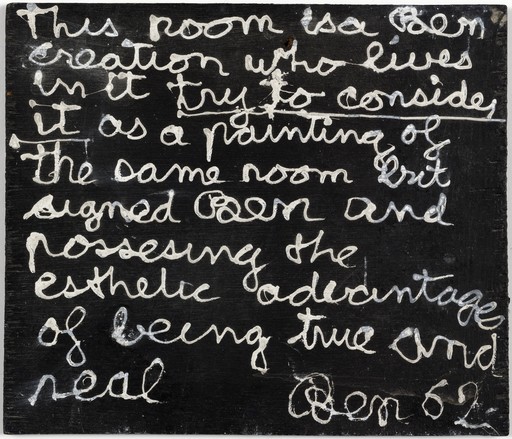 This room is a Ben
creation who lives
in it try to consider
it as a painting of
the same room but
signed Ben and
possesing the
esthetic advantage
of being true and
real Ben 62